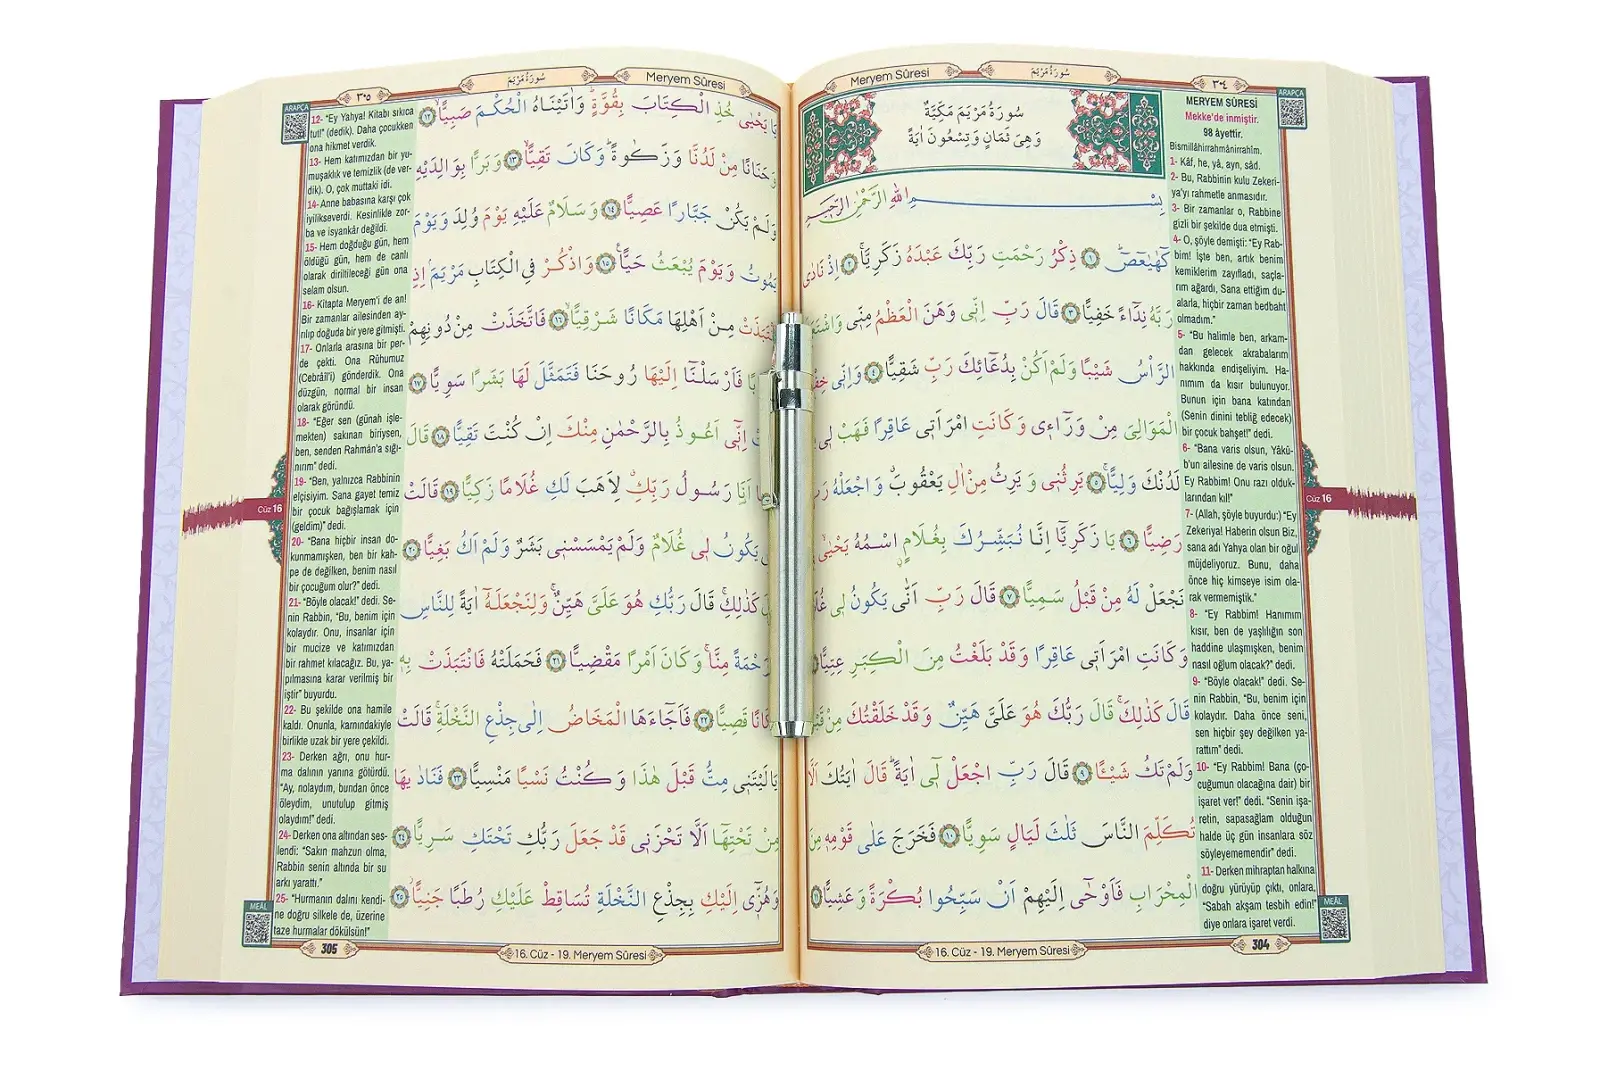 Meryem Sûresi
سُورَةُ مَرْيَمَ
٣٠٤
سُورَةُ مَرْيَمَ مَكِّيَّةٌ
وَهِىَ ثَمَانٍ وَتِسْعُونَ اٰيَةً
بِسْمِ اللّٰهِ الرَّحْمٰنِ الرَّحٖيمِ
كٓهٰيٰعٓصٓ ﴿١﴾ ذِكْرُ رَحْمَتِ رَبِّكَ عَبْدَهُ زَكَرِيَّا ﴿٢﴾ اِذْ نَادٰى
رَبَّهُ نِدَٓاءً خَفِيًّا ﴿٣﴾ قَالَ رَبِّ اِنّٖى وَهَنَ الْعَظْمُ مِنّٖى
الرَّاْسُ شَيْبًا وَلَمْ اَكُنْ بِدُعَٓائِكَ رَبِّ شَقِيًّا ﴿٤﴾ وَاِنّٖى
الْمَوَالِىَ مِنْ وَرَٓاءٖى وَكَانَتِ امْرَاَتٖى عَاقِرًا فَهَبْ لٖى
لَدُنْكَ وَلِيًّا ﴿٥﴾ يَرِثُنٖى وَيَرِثُ مِنْ اٰلِ يَعْقُوبَ وَاجْعَلْهُ
رَضِيًّا ﴿٦﴾ يَا زَكَرِيَّٓا اِنَّا نُبَشِّرُكَ بِغُلَامٍ اسْمُهُ يَحْيٰى
نَجْعَلْ لَهُ مِنْ قَبْلُ سَمِيًّا ﴿٧﴾ قَالَ رَبِّ اَنّٰى يَكُونُ لٖى
وَكَانَتِ امْرَاَتٖى عَاقِرًا وَقَدْ بَلَغْتُ مِنَ الْكِبَرِ عِتِيًّا
قَالَ كَذٰلِكَ قَالَ رَبُّكَ هُوَ عَلَىَّ هَيِّنٌ وَقَدْ خَلَقْتُكَ مِنْ
وَلَمْ تَكُ شَيْـًٔا ﴿٩﴾ قَالَ رَبِّ اجْعَلْ لٖٓى اٰيَةً قَالَ اٰيَتُكَ
تُكَلِّمَ النَّاسَ ثَلٰثَ لَيَالٍ سَوِيًّا ﴿١٠﴾ فَخَرَجَ عَلٰى قَوْمِهٖ
الْمِحْرَابِ فَاَوْحٰٓى اِلَيْهِمْ اَنْ سَبِّحُوا بُكْرَةً وَعَشِيًّا ﴿١١﴾
ARAPÇA
MERYEM SÛRESİ
Mekke'de inmiştir.
98 âyettir.
Bismillâhirrahmânirrahîm.
1- Kâf, he, yâ, ayn, sâd.
2- Bu, Rabbinin kulu Zekeri-
ya'yı rahmetle anmasıdır.
3- Bir zamanlar o, Rabbine
gizli bir şekilde dua etmişti.
4- O, şöyle demişti: "Ey Rab-
bim! İşte ben, artık benim
kemiklerim zayıfladı, saçla-
rım ağardı, Sana ettiğim du-
alarla, hiçbir zaman bedbaht
olmadım."
5- "Bu halimle ben, arkam-
dan gelecek akrabalarım
hakkında endişeliyim. Ha-
nımım da kısır bulunuyor.
Bunun için bana katından
(Senin dinini tebliğ edecek)
bir çocuk bahşet!" dedi.
6- "Bana varis olsun, Yâkû-
b'un ailesine de varis olsun.
Ey Rabbim! Onu razı olduk-
larından kıl!"
7- (Allah, şöyle buyurdu:) "Ey
Zekeriya! Haberin olsun Biz,
sana adı Yahya olan bir oğul
müjdeliyoruz. Bunu, daha
önce hiç kimseye isim ola-
rak vermemiştik."
8- "Ey Rabbim! Hanımım
kısır, ben de yaşlılığın son
haddine ulaşmışken, benim
nasıl oğlum olacak?" dedi.
9- "Böyle olacak!" dedi. Se-
nin Rabbin, "Bu, benim için
kolaydır. Daha önce seni,
sen hiçbir şey değilken ya-
rattım" dedi.
10- "Ey Rabbim! Bana (ço-
cuğumun olacağına dair) bir
işaret ver!" dedi. "Senin işa-
retin, sapasağlam olduğun
halde üç gün insanlara söz
söyleyememendir" dedi.
11- Derken mihraptan halkına
doğru yürüyüp çıktı, onlara,
"Sabah akşam tesbih edin!"
diye onlara işaret verdi.
Cüz 16
MEÂL
16. Cüz - 19. Meryem Sûresi
304
٣٠٥
سُورَةُ مَرْيَمَ
Meryem Sûresi
يَا يَحْيٰى خُذِ الْكِتَابَ بِقُوَّةٍ وَاٰتَيْنَاهُ الْحُكْمَ صَبِيًّا ﴿١٢﴾
وَحَنَانًا مِنْ لَدُنَّا وَزَكٰوةً وَكَانَ تَقِيًّا ﴿١٣﴾ وَبَرًّا بِوَالِدَيْهِ
وَلَمْ يَكُنْ جَبَّارًا عَصِيًّا ﴿١٤﴾ وَسَلَامٌ عَلَيْهِ يَوْمَ وُلِدَ وَيَوْمَ
يَمُوتُ وَيَوْمَ يُبْعَثُ حَيًّا ﴿١٥﴾ وَاذْكُرْ فِى الْكِتَابِ مَرْيَمَ اِذِ
انْتَبَذَتْ مِنْ اَهْلِهَا مَكَانًا شَرْقِيًّا ﴿١٦﴾ فَاتَّخَذَتْ مِنْ دُونِهِمْ
فَاَرْسَلْنَٓا اِلَيْهَا رُوحَنَا فَتَمَثَّلَ لَهَا بَشَرًا سَوِيًّا ﴿١٧﴾
اِنّٖٓى اَعُوذُ بِالرَّحْمٰنِ مِنْكَ اِنْ كُنْتَ تَقِيًّا ﴿١٨﴾ قَالَ
اَنَا رَسُولُ رَبِّكِ لِاَهَبَ لَكِ غُلَامًا زَكِيًّا ﴿١٩﴾ قَالَتْ
يَكُونُ لٖى غُلَامٌ وَلَمْ يَمْسَسْنٖى بَشَرٌ وَلَمْ اَكُ بَغِيًّا ﴿٢٠﴾
كَذٰلِكِ قَالَ رَبُّكِ هُوَ عَلَىَّ هَيِّنٌ وَلِنَجْعَلَهُٓ اٰيَةً لِلنَّاسِ
وَرَحْمَةً مِنَّا وَكَانَ اَمْرًا مَقْضِيًّا ﴿٢١﴾ فَحَمَلَتْهُ فَانْتَبَذَتْ بِهٖ
مَكَانًا قَصِيًّا ﴿٢٢﴾ فَاَجَٓاءَهَا الْمَخَاضُ اِلٰى جِذْعِ النَّخْلَةِ قَالَتْ
يَا لَيْتَنٖى مِتُّ قَبْلَ هٰذَا وَكُنْتُ نَسْيًا مَنْسِيًّا ﴿٢٣﴾ فَنَادٰيهَا
مِنْ تَحْتِهَٓا اَلَّا تَحْزَنٖى قَدْ جَعَلَ رَبُّكِ تَحْتَكِ سَرِيًّا ﴿٢٤﴾
وَهُزّٖٓى اِلَيْكِ بِجِذْعِ النَّخْلَةِ تُسَاقِطْ عَلَيْكِ رُطَبًا جَنِيًّا ﴿٢٥﴾
ARAPÇA
12- "Ey Yahya! Kitabı sıkıca
tut!" (dedik). Daha çocukken
ona hikmet verdik.
13- Hem katımızdan bir yu-
muşaklık ve temizlik (de ver-
dik). O, çok muttaki idi.
14- Anne babasına karşı çok
iyilikseverdi. Kesinlikle zor-
ba ve isyankâr değildi.
15- Hem doğduğu gün, hem
öldüğü gün, hem de canlı
olarak diriltileceği gün ona
selam olsun.
16- Kitapta Meryem'i de an!
Bir zamanlar ailesinden ay-
rılıp doğuda bir yere gitmişti.
17- Onlarla arasına bir per-
de çekti. Ona Rûhumuz
(Cebrâîl'i) gönderdik. Ona
düzgün, normal bir insan
olarak göründü.
18- "Eğer sen (günah işle-
mekten) sakınan biriysen,
ben, senden Rahmân'a sığı-
nırım" dedi.
19- "Ben, yalnızca Rabbinin
elçisiyim. Sana gayet temiz
bir çocuk bağışlamak için
(geldim)" dedi.
20- "Bana hiçbir insan do-
kunmamışken, ben bir kah-
pe de değilken, benim nasıl
bir çocuğum olur?" dedi.
21- "Böyle olacak!" dedi. Se-
nin Rabbin, "Bu, benim için
kolaydır. Onu, insanlar için
bir mucize ve katımızdan
bir rahmet kılacağız. Bu, ya-
pılmasına karar verilmiş bir
iştir" buyurdu.
22- Bu şekilde ona hamile
kaldı. Onunla, karnındakiyle
birlikte uzak bir yere çekildi.
23- Derken ağrı, onu hur-
ma dalının yanına götürdü.
"Ay, nolaydım, bundan önce
öleydim, unutulup gitmiş
olaydım!" dedi.
24- Derken ona altından ses-
lendi: "Sakın mahzun olma,
Rabbin senin altında bir su
arkı yarattı."
25- "Hurmanın dalını kendi-
ne doğru silkele de, üzerine
taze hurmalar dökülsün!"
Cüz 16
MEÂL
305
16. Cüz - 19. Meryem Sûresi